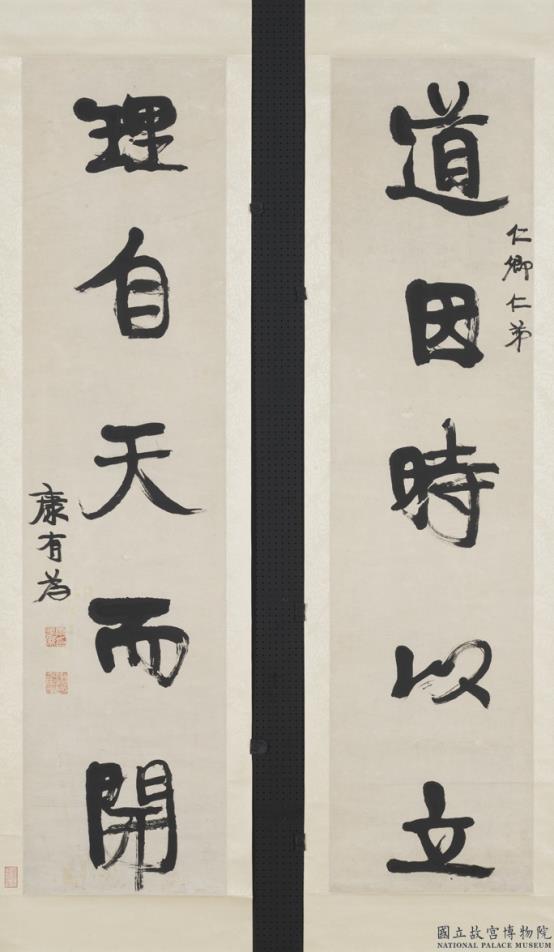 道因時以立
仁卿仁弟
理自天而開
康有為
國立故宮博物院
NATIONAL PALACE MUSEUM